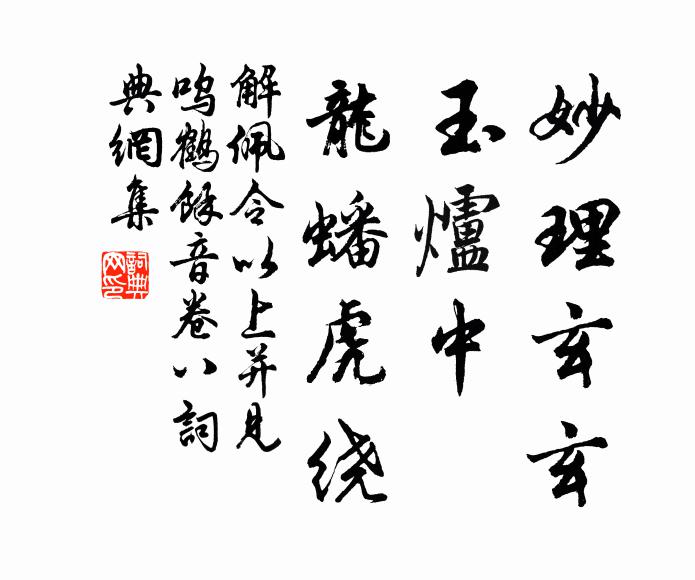 妙理玄玄
玉爐中
龍蟠虎绕
解佩令以上并見
鸣鶴餘音卷八詞
典網集
詞典网印